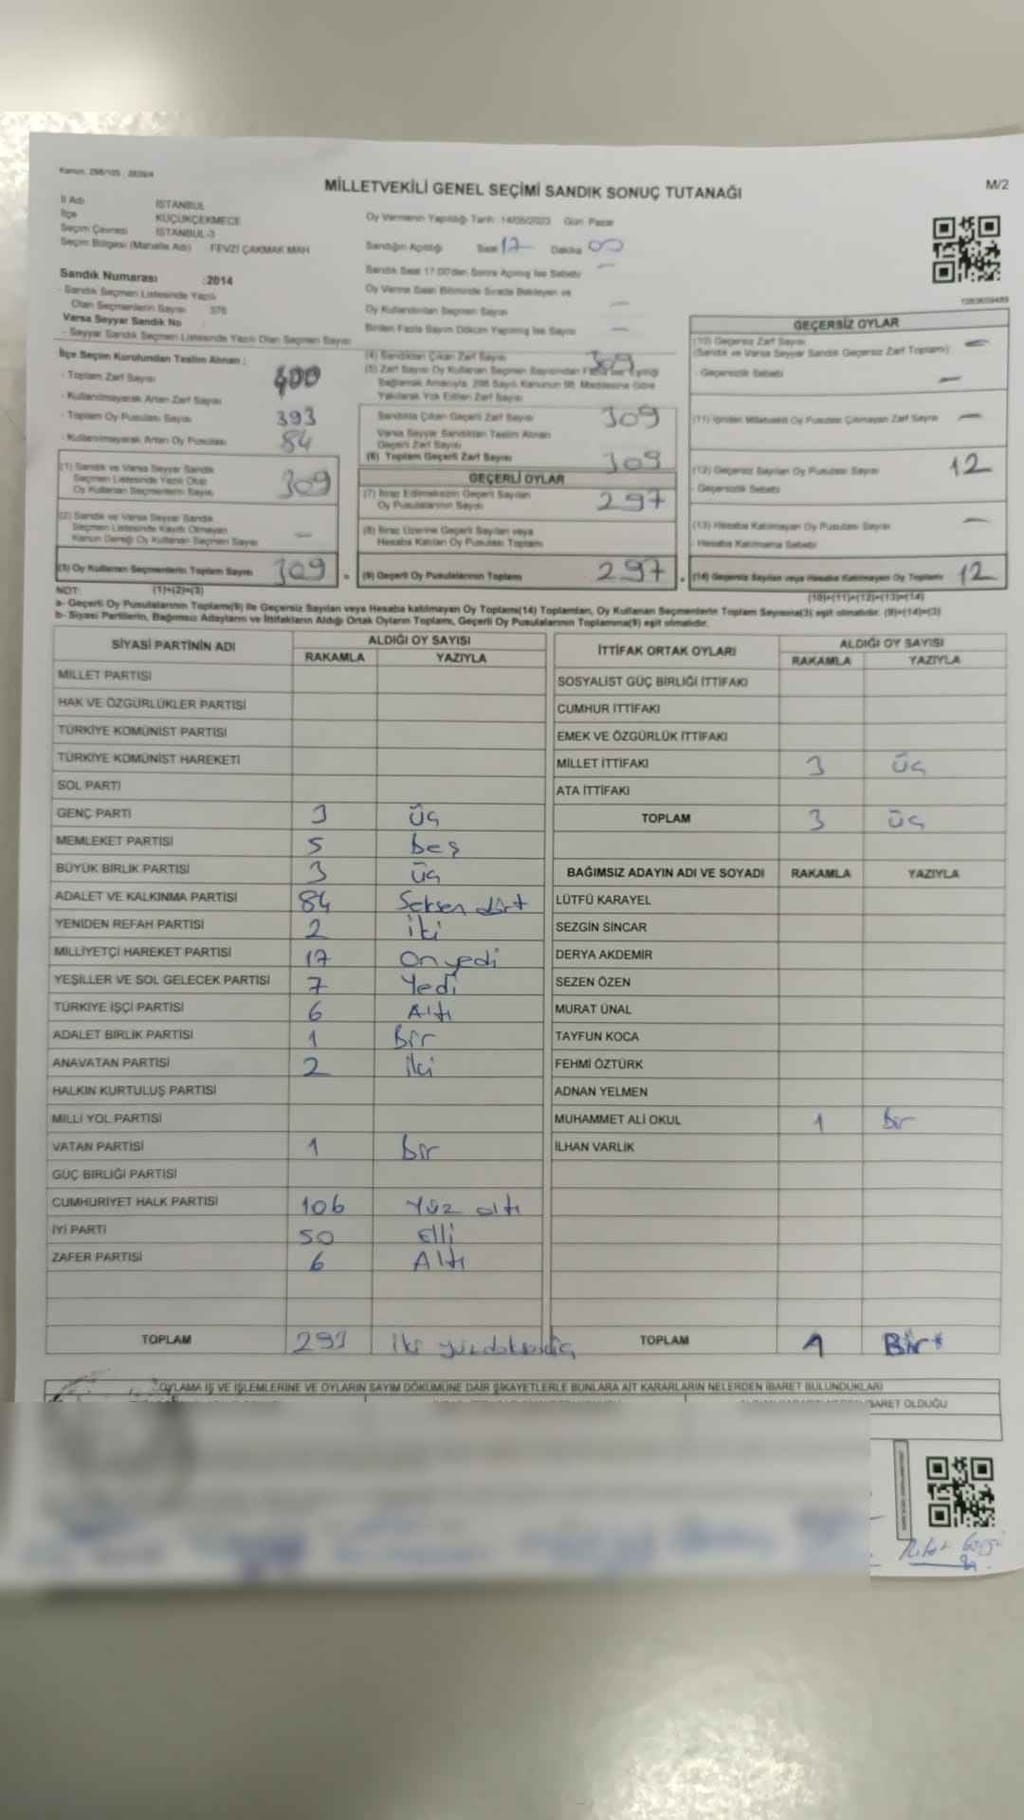 MİLLETVEKİLİ GENEL SEÇİMİ SANDIK SONUÇ TUTANAĞI
M/2
İl Adı İSTANBUL
İlçe KÜÇÜKÇEKMECE
Seçim Çevresi İSTANBUL-3
Seçim Bölgesi (Mahalle Adı) FEVZİ ÇAKMAK MAH
Oy Vermenin Yapıldığı Tarih 14/05/2023 Gün Pazar
Sandığın Açıldığı Saat 17 Dakika 00
Sandık Saat 17:00'den Sonra Açılmış İse Sebebi
Oy Verme Saati Bitiminde Sırada Bekleyen ve
Oy Kullandırılan Seçmen Sayısı
Birden Fazla Sayım Döküm Yapılmış İse Sayısı
Sandık Numarası :2014
- Sandık Seçmen Listesinde Yazılı
Olan Seçmenlerin Sayısı 376
Varsa Seyyar Sandık No
- Seyyar Sandık Seçmen Listesinde Yazılı Olan Seçmen Sayısı
İlçe Seçim Kurulundan Teslim Alınan :
- Toplam Zarf Sayısı 400
- Kullanılmayarak Artan Zarf Sayısı
- Toplam Oy Pusulası Sayısı 393
- Kullanılmayarak Artan Oy Pusulası 84
(1) Sandık ve Varsa Seyyar Sandık
Seçmen Listesinde Yazılı Olup
Oy Kullanan Seçmenlerin Sayısı 309
(2) Sandık ve Varsa Seyyar Sandık
Seçmen Listesinde Kayıtlı Olmayan
Kanun Gereği Oy Kullanan Seçmen Sayısı
(3) Oy Kullanan Seçmenlerin Toplam Sayısı 309
(1)+(2)=(3)
(4) Sandıktan Çıkan Zarf Sayısı 309
(5) Zarf Sayısı Oy Kullanan Seçmen Sayısından
Sandıkta Çıkan Geçerli Zarf Sayısı 309
Varsa Seyyar Sandıktan Teslim Alınan
Geçerli Zarf Sayısı
(6) Toplam Geçerli Zarf Sayısı 309
GEÇERLİ OYLAR
(7) İtiraz Edilmeksizin Geçerli Sayılan
Oy Pusulalarının Sayısı 297
(8) İtiraz Üzerine Geçerli Sayılan veya
Hesaba Katılan Oy Pusulası Toplamı
(9) Geçerli Oy Pusulalarının Toplamı 297
GEÇERSİZ OYLAR
(10) Geçersiz Zarf Sayısı
(Sandık ve Varsa Seyyar Sandık Geçersiz Zarf Toplamı)
- Geçersizlik Sebebi
(12) Geçersiz Sayılan Oy Pusulası Sayısı 12
- Geçersizlik Sebebi
(13) Hesaba Katılmayan Oy Pusulası Sayısı
- Hesaba Katılmama Sebebi
(14) Geçersiz Sayılan veya Hesaba Katılmayan Oy Toplamı 12
(10)+(11)+(12)+(13)=(14)
NOT:
a- Geçerli Oy Pusulalarının Toplamı(9) ile Geçersiz Sayılan veya Hesaba katılmayan Oy Toplamı(14) Toplamları, Oy Kullanan Seçmenlerin Toplam Sayısına(3) eşit olmalıdır. (9)+(14)=(3)
b- Siyasi Partilerin, Bağımsız Adayların ve İttifakların Aldığı Ortak Oyların Toplamı, Geçerli Oy Pusulalarının Toplamına(9) eşit olmalıdır.
SİYASİ PARTİNİN ADI ALDIĞI OY SAYISI
RAKAMLA YAZIYLA
MİLLET PARTİSİ
HAK VE ÖZGÜRLÜKLER PARTİSİ
TÜRKİYE KOMÜNİST PARTİSİ
TÜRKİYE KOMÜNİST HAREKETİ
SOL PARTİ
GENÇ PARTİ 3 üç
MEMLEKET PARTİSİ 5 beş
BÜYÜK BİRLİK PARTİSİ 3 üç
ADALET VE KALKINMA PARTİSİ 84 Seksen dört
YENİDEN REFAH PARTİSİ 2 iki
MİLLİYETÇİ HAREKET PARTİSİ 17 On yedi
YEŞİLLER VE SOL GELECEK PARTİSİ 7 Yedi
TÜRKİYE İŞÇİ PARTİSİ 6 Altı
ADALET BİRLİK PARTİSİ 1 Bir
ANAVATAN PARTİSİ 2 iki
HALKIN KURTULUŞ PARTİSİ
MİLLİ YOL PARTİSİ
VATAN PARTİSİ 1 bir
GÜÇ BİRLİĞİ PARTİSİ
CUMHURİYET HALK PARTİSİ 106 Yüz altı
İYİ PARTİ 50 elli
ZAFER PARTİSİ 6 Altı
TOPLAM 293
İTTİFAK ORTAK OYLARI ALDIĞI OY SAYISI
RAKAMLA YAZIYLA
SOSYALİST GÜÇ BİRLİĞİ İTTİFAKI
CUMHUR İTTİFAKI
EMEK VE ÖZGÜRLÜK İTTİFAKI
MİLLET İTTİFAKI 3 üç
ATA İTTİFAKI
TOPLAM 3 üç
BAĞIMSIZ ADAYIN ADI VE SOYADI RAKAMLA YAZIYLA
LÜTFÜ KARAYEL
SEZGİN SİNCAR
DERYA AKDEMİR
SEZEN ÖZEN
MURAT ÜNAL
TAYFUN KOCA
FEHMİ ÖZTÜRK
ADNAN YELMEN
MUHAMMET ALİ OKUL 1 bir
İLHAN VARLIK
TOPLAM 1 Bir
OYLAMA İŞ VE İŞLEMLERİNE VE OYLARIN SAYIM DÖKÜMÜNE DAİR ŞİKAYETLERLE BUNLARA AİT KARARLARIN NELERDEN İBARET BULUNDUKLARI
BARET OLDUĞU